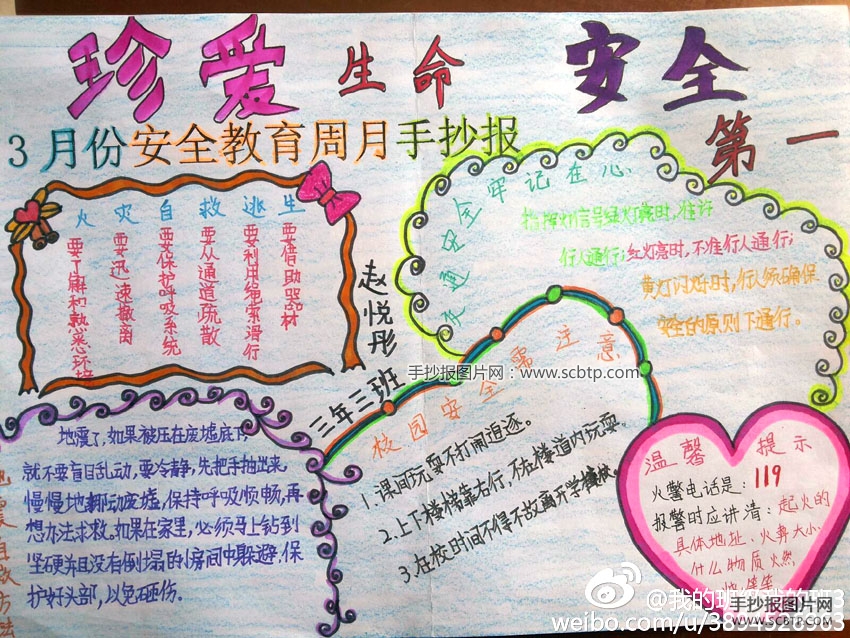 珍爱生命 安全
第一
3月份安全教育周月手抄报
火灾自救逃生
要了解和熟悉环境
要迅速撤离
要保护呼吸系统
要从通道疏散
要利用绳索滑行
要借助器材
赵悦彤
三年三班
交通安全牢记在心
指挥灯信号绿灯亮时,准许
行人通行;红灯亮时,不准行人通行;
黄灯闪烁时,行人须确保
安全的原则下通行。
手抄报图片网:www.scbtp.com
校园安全需注意
1.课间玩耍不打闹追逐。
2.上下楼梯靠右行,不在楼道内玩耍。
3.在校时间不得不故离开学校。
地震自救方法
地震了,如果被压在废墟底下,
就不要盲目乱动,要冷静,先把手抽出来,
慢慢地挪动废墟,保持呼吸顺畅,再
想办法求救。如果在家里,必须马上钻到
坚硬并且没有倒塌的小房间中躲避,保
护好头部,以免砸伤。
温馨提示
火警电话是:119
报警时应讲清:起火的
具体地址、火势大小、
什么物质火燃
等等
@我的班级我的班3
weibo.com/u/3894528903
手抄报图片网
WWW.SCBTP.COM